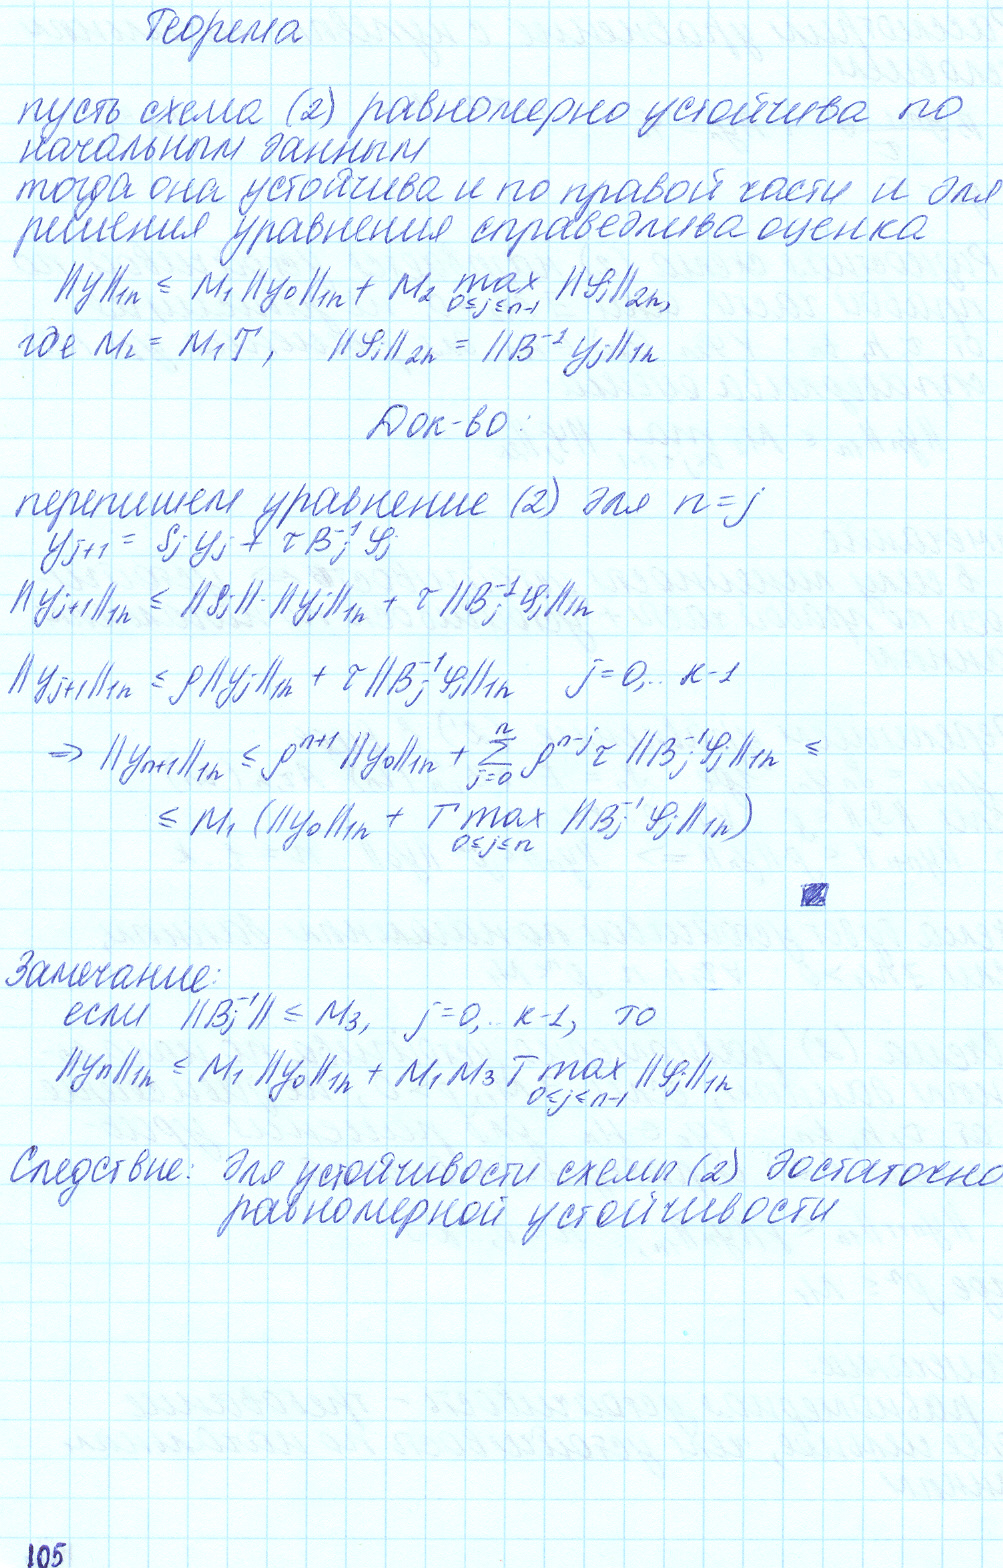 Теорема
пусть схема (2) равномерно устойчива по
начальным данным
тогда она устойчива и по правой части и для
решения уравнения справедлива оценка
||y||₁ₕ ≤ M₁ ||y₀||₁ₕ + M₂ max_{0≤j≤n-1} ||φⱼ||₂ₕ,
где M₂ = M₁T, ||φⱼ||₂ₕ = ||B⁻¹ yⱼ||₁ₕ
Док-во:
перепишем уравнение (2) для n=j
yⱼ₊₁ = Sⱼ yⱼ + τ Bⱼ⁻¹ φⱼ
||yⱼ₊₁||₁ₕ ≤ ||Sⱼ|| · ||yⱼ||₁ₕ + τ ||Bⱼ⁻¹ φⱼ||₁ₕ
||yⱼ₊₁||₁ₕ ≤ ρ ||yⱼ||₁ₕ + τ ||Bⱼ⁻¹ φⱼ||₁ₕ j=0,.. K-1
⇒ ||yₙ₊₁||₁ₕ ≤ ρⁿ⁺¹ ||y₀||₁ₕ + Σ_{j=0}^{n} ρ^{n-j} τ ||Bⱼ⁻¹ φⱼ||₁ₕ ≤
≤ M₁ (||y₀||₁ₕ + T max_{0≤j≤n} ||Bⱼ⁻¹ φⱼ||₁ₕ)
Замечание:
если ||Bⱼ⁻¹|| ≤ M₃, j=0,.. K-1, то
||yₙ||₁ₕ ≤ M₁ ||y₀||₁ₕ + M₁ M₃ T max_{0≤j≤n-1} ||φⱼ||₁ₕ
Следствие: для устойчивости схемы (2) достаточно
равномерной устойчивости
105